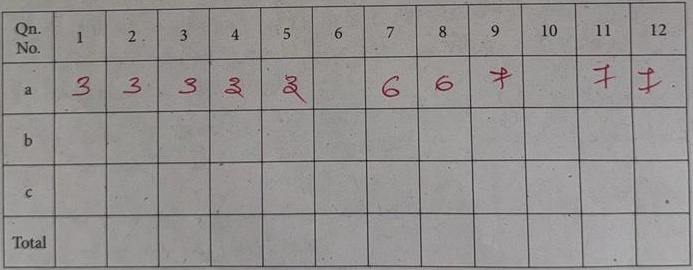 Qn. No. 1 2 3 4 5 6 7 8 9 10 11 12
a 3 3 3 3 3 6 6 7 7 7
b
c
Total